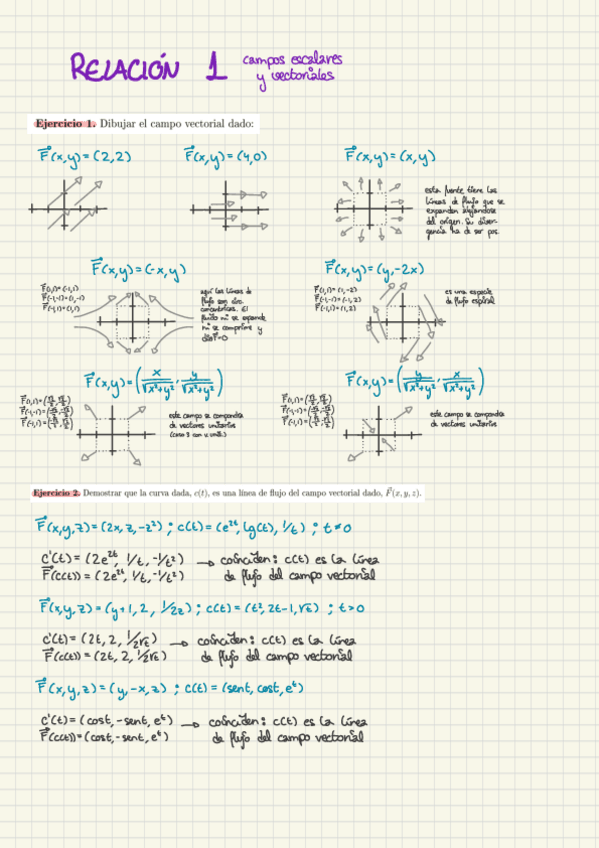 RELACIÓN 1 campos escalares
y vectoriales
Ejercicio 1. Dibujar el campo vectorial dado:
F⃗(x,y)=(2,2) F⃗(x,y)=(4,0) F⃗(x,y)=(x,y)
esta fuente tiene las
líneas de flujo que se
expanden alejándose
del origen. Su diver-
gencia ha de ser pos.
F⃗(x,y)=(-x,y) F⃗(x,y)=(y,-2x)
F⃗(1,1)=(-1,1)
F⃗(-1,-1)=(1,-1)
F⃗(-1,1)=(1,1)
aquí las líneas de
flujo son
El
fluido ni se expande
ni se comprime y
div F⃗=0
F⃗(1,1)=(1,-2)
F⃗(-1,-1)=(-1,2)
F⃗(-1,1)=(1,2)
es una especie
de flujo espiral
F⃗(x,y)=(x/√x²+y², y/√x²+y²) F⃗(x,y)=(y/√x²+y², x/√x²+y²)
este campo se compondrá
de vectores unitarios
este campo se compondrá
de vectores unitarios
Ejercicio 2. Demostrar que la curva dada, c(t), es una línea de flujo del campo vectorial dado, F⃗(x, y, z).
F⃗(x,y,z)=(2x,z,-z²) ; c(t)=(e²ᵗ, lg(t), 1/t) ; t≠0
c'(t)=(2e²ᵗ, 1/t, -1/t²) → coinciden: c(t) es la línea
F⃗(c(t))=(2e²ᵗ, 1/t, -1/t²) de flujo del campo vectorial
F⃗(x,y,z)=(y+1, 2, 1/2z) ; c(t)=(t², 2t-1, √t) ; t>0
c'(t)=(2t, 2, 1/2√t) → coinciden: c(t) es la línea
F⃗(c(t))=(2t, 2, 1/2√t) de flujo del campo vectorial
F⃗(x,y,z)=(y,-x,z) ; c(t)=(sent, cost, eᵗ)
c'(t)=(cost,-sent, eᵗ) → coinciden: c(t) es la línea
F⃗(c(t))=(cost,-sent, eᵗ) de flujo del campo vectorial